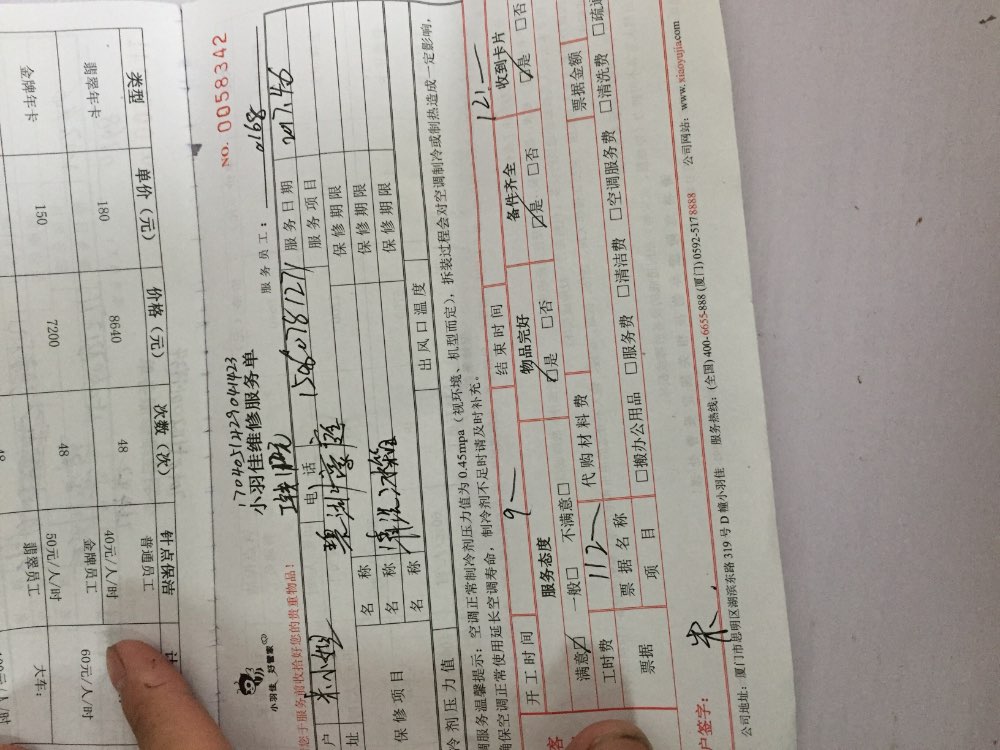 类型 单价（元） 价格（元） 次数（次） 针点保洁
翡翠年卡 180 8640 48 普通员工
40元/人/时
金牌年卡 150 7200 48 金牌员工
50元/人/时
翡翠员工
60元/人/时
大车:
NO. 0058342
1704051429041423
小羽佳维修服务单
小羽佳 好管家
您于服务前收拾好您的贵重物品！
服务员工：
户 朱小姐 电话 15060781271 服务日期 2017.4.6
址 服务项目
保修项目 名称 清洗冰箱 保修期限
名称 保修期限
名称 保修期限
冷剂压力值 出风口温度
调服务温馨提示：空调正常制冷剂压力值为0.45mpa（视环境、机型而定），拆装过程会对空调制冷或制热造成一定影响，
确保空调正常使用延长空调寿命，制冷剂不足时请及时补充。
开工时间 9 结束时间 121
客 服务态度 物品完好 备件齐全 收到卡片
满意☑ 一般□ 不满意□ ☑是 □否 ☑是 □否 ☑是 □否
工时费 112 代购材料费 票据金额
票据 票据名称 □搬办公用品 □服务费 □清洁费 □空调服务费 □清洗费 □疏通
项目
户签字： 朱
公司地址：厦门市思明区湖滨东路319号D幢小羽佳 服务热线：(全国) 400-6655-888 (厦门) 0592-5178888 公司网站：www.xiaoyujia.com